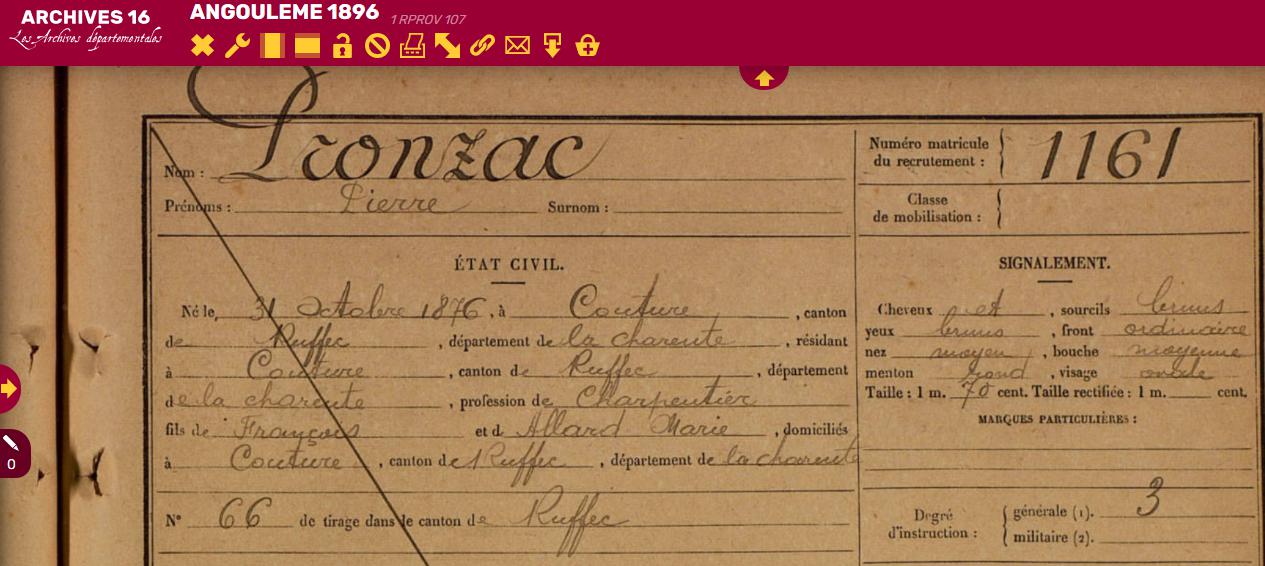 ARCHIVES 16
Les Archives départementales
ANGOULEME 1896 1 RPROV 107
0
Nom : Pronzac
Prénoms : Pierre Surnom :
Numéro matricule du recrutement : 1161
Classe de mobilisation :
ÉTAT CIVIL.
Né le, 31 Octobre 1876, à Couture, canton
de Ruffec, département de la charente, résidant
à Couture, canton de Ruffec, département
de la charente, profession de Charpentier
fils de François et d Allard Marie, domiciliés
à Couture, canton de Ruffec, département de la charente
N° 66 de tirage dans le canton de Ruffec
SIGNALEMENT.
Cheveux et, sourcils bruns
yeux bruns, front ordinaire
nez moyen, bouche moyenne
menton rond, visage ovale
Taille : 1 m. 70 cent. Taille rectifiée : 1 m. cent.
MARQUES PARTICULIÈRES :
Degré d'instruction : générale (1). 3
militaire (2).